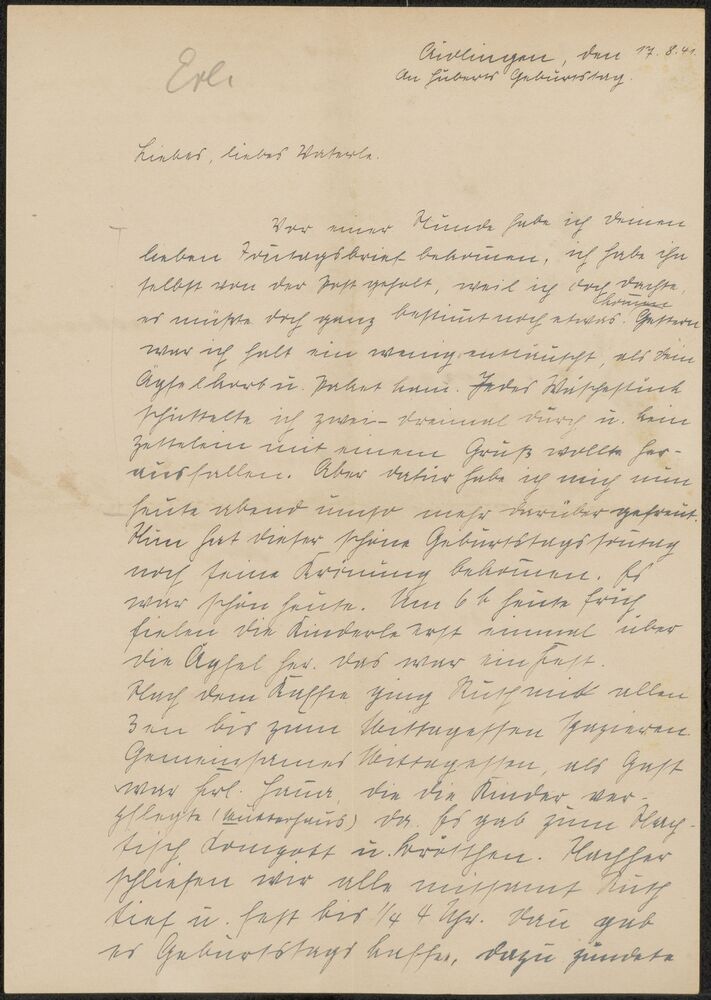 Erl.
Aidlingen, den 17.8.41.
An Huberts Geburtstag.
Liebes, liebes Vaterle.
Vor einer Stunde habe ich Deinen
lieben Freitagsbrief bekommen, ich habe ihn
selbst von der Post geholt, weil ich doch dachte,
kommen
es müßte doch ganz bestimmt noch etwas. Gestern
war ich halt ein wenig enttäuscht, als Dein
Äpfelkorb u. Paket kam. Jedes Wäschestück
schüttelte ich zwei- dreimal durch u. kein
Zettelein mit einem Gruß wollte her-
ausfallen. Aber dafür habe ich mich nun
heute abend umso mehr darüber gefreut.
Nun hat dieser schöne Geburtstagssonntag
noch seine Krönung bekommen. Es
war schön heute. Um 6 h heute früh
fielen die Kinderle erst einmal über
die Äpfel her. Das war ein Fest.
Nach dem Kaffee ging Ruth mit allen
3en bis zum Mittagessen spazieren.
Gemeinsames Mittagessen, als Gast
war Frl. die die Kinder ver-
pflegte (Mutterhaus) da. Es gab zum Nach-
tisch Kompott u. Brötchen. Nachher
schliefen wir alle mitsamt Ruth
tief u. fest bis 1/4 4 Uhr. Dann gab
es Geburtstagskaffee, dazu zündete